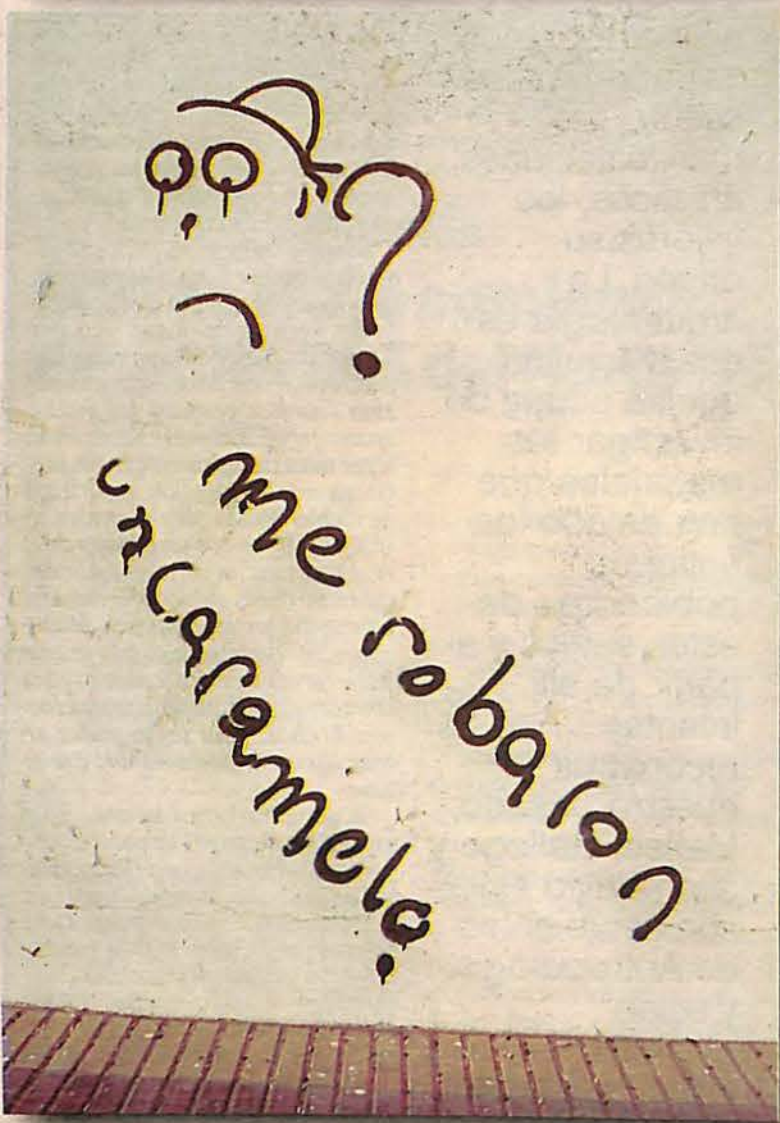 ?
me robaron
un caramelo.